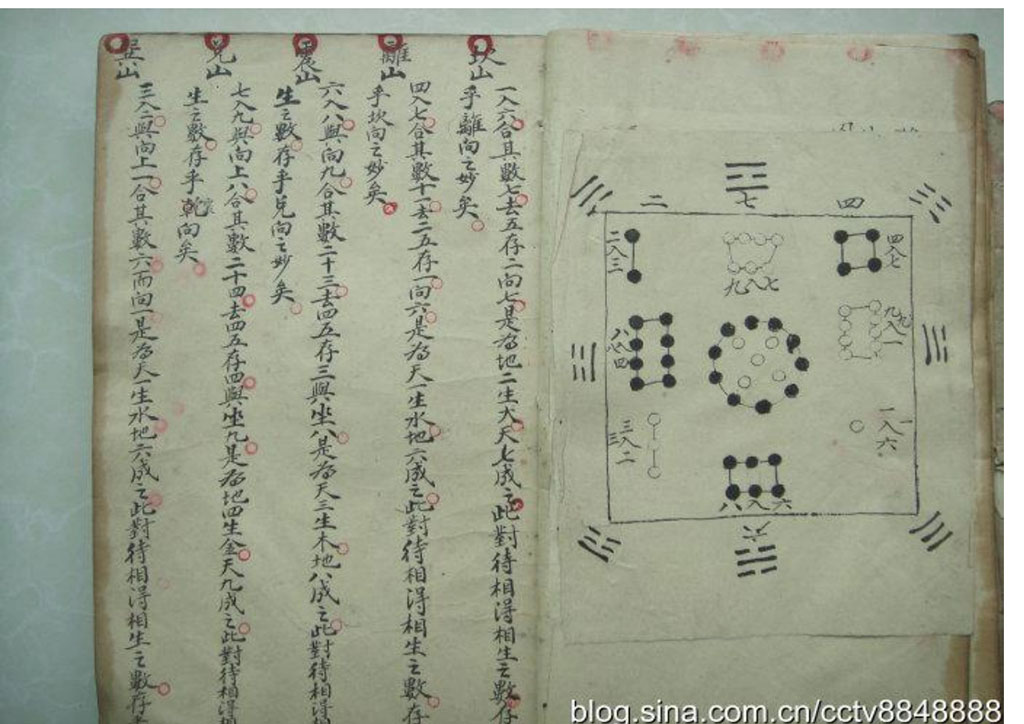 坎山
一入六合其數七去五存二向七是為地二生火天七成之此對待相得相生之數存
乎離向之妙矣
離山
四入七合其數十一去二五存一向六是為天一生水地六成之此對待相得相生之數存
乎坎向之妙矣
震山
六入八與向九合其數二十三去四五存三與坐八是為天三生木地八成之此對待相得
生之數存乎兌向之妙矣
兌山
七入九與向上八合其數二十四去四五存四與坐九是為地四生金天九成之此對待相得
生之數存乎乾向矣
巽山
三入二與向上一合其數六而向一是為天一生水地六成之此對待相得相生之數存
二 七 四
二入三
九入七
四入七
八入四
九入一
三入二
一入六
八入六
六
blog.sina.com.cn/cctv8848888